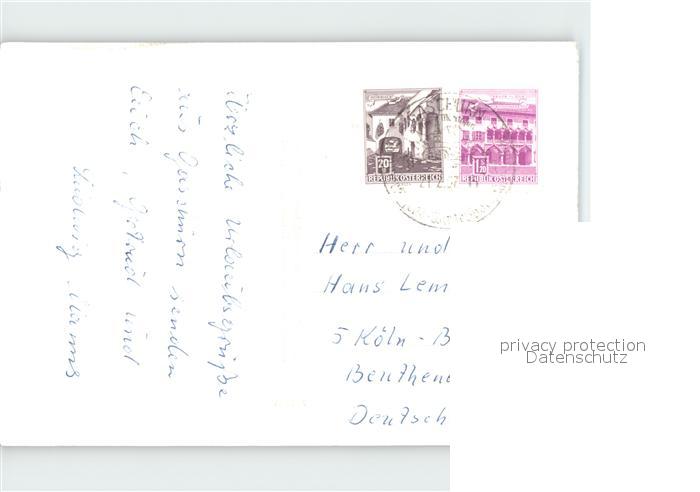 Herzliche Urlaubsgrüße
aus Gaschurn senden
Euch, Gertrud und
Ludwig
GASCHURN
20
REPUBLIK ÖSTERREICH
1.20
REPUBLIK ÖSTERREICH
Herr und
Hans Lem
5 Köln - B
Deutsch
privacy protection
Datenschutz